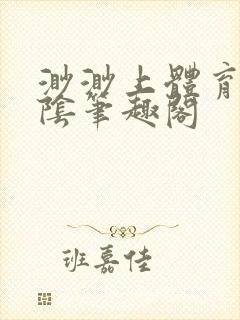 渺渺上體育
陰筆趣閣
班嘉佳